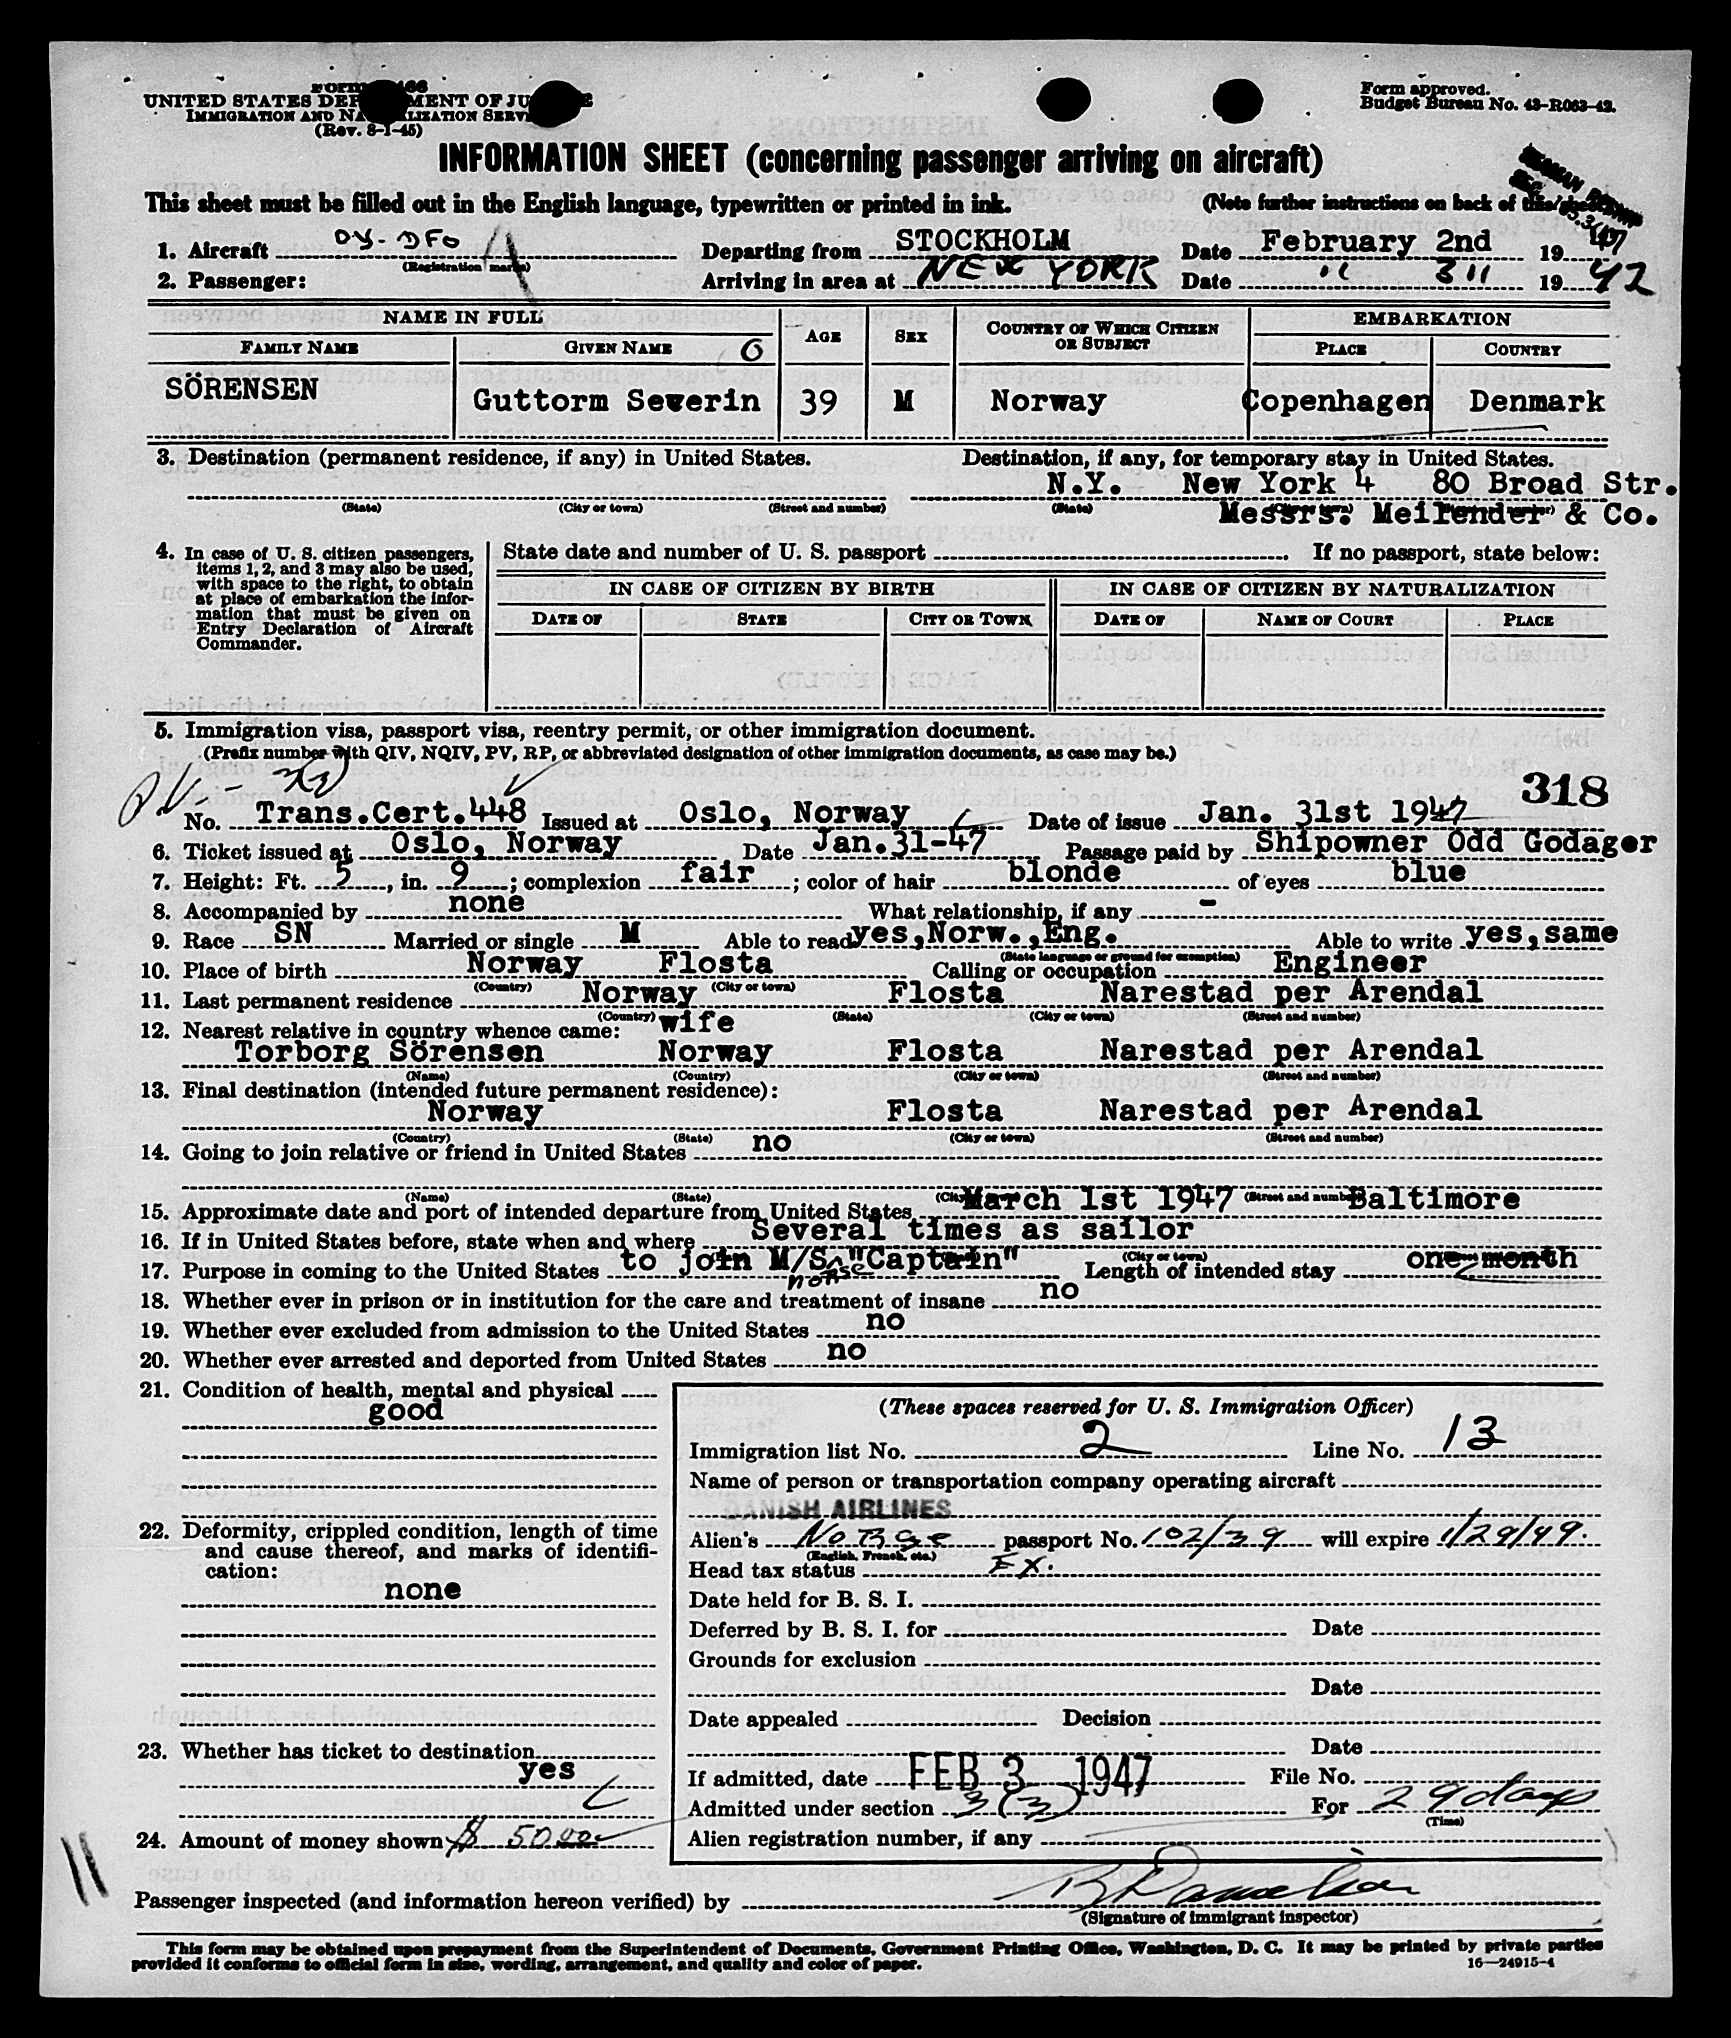 UNITED STATES DEPARTMENT OF JUSTICE
IMMIGRATION AND NATURALIZATION SERVICE
(Rev. 8-1-45)
Form approved.
Budget Bureau No. 43-R063-42.
INFORMATION SHEET (concerning passenger arriving on aircraft)
This sheet must be filled out in the English language, typewritten or printed in ink. (Note further instructions on back of this sheet)
1. Aircraft OY-DFO Departing from STOCKHOLM Date February 2nd 1947
(Registration marks)
2. Passenger: Arriving in area at NEW YORK Date " 3" 1942
NAME IN FULL AGE SEX COUNTRY OF WHICH CITIZEN OR SUBJECT EMBARKATION
FAMILY NAME GIVEN NAME PLACE COUNTRY
SÖRENSEN Guttorm Severin 39 M Norway Copenhagen Denmark
3. Destination (permanent residence, if any) in United States. Destination, if any, for temporary stay in United States.
N.Y. New York 4 80 Broad Str.
(State) (City or town) (Street and number) (State) Messrs. Meilender & Co.
4. In case of U. S. citizen passengers, items 1, 2, and 3 may also be used, with space to the right, to obtain at place of embarkation the information that must be given on Entry Declaration of Aircraft Commander.
State date and number of U. S. passport If no passport, state below:
IN CASE OF CITIZEN BY BIRTH IN CASE OF CITIZEN BY NATURALIZATION
DATE OF STATE CITY OR TOWN DATE OF NAME OF COURT PLACE
5. Immigration visa, passport visa, reentry permit, or other immigration document.
(Prefix number with QIV, NQIV, PV, RP, or abbreviated designation of other immigration documents, as case may be.)
318
No. Trans.Cert.448 Issued at Oslo, Norway Date of issue Jan. 31st 1947
6. Ticket issued at Oslo, Norway Date Jan.31-47 Passage paid by Shipowner Odd Godager
7. Height: Ft. 5, in. 9; complexion fair; color of hair blonde of eyes blue
8. Accompanied by none What relationship, if any -
9. Race SN Married or single M Able to read yes,Norw.,Eng. Able to write yes,same
(State language or ground for exemption)
10. Place of birth Norway Flosta Calling or occupation Engineer
(Country) (City or town)
11. Last permanent residence Norway Flosta Narestad per Arendal
(Country) (State) (City or town) (Street and number)
12. Nearest relative in country whence came: wife
Torborg Sörensen Norway Flosta Narestad per Arendal
(Name) (Country) (City or town) (Street and number)
13. Final destination (intended future permanent residence):
Norway Flosta Narestad per Arendal
(Country) (State) (City or town) (Street and number)
14. Going to join relative or friend in United States no
(Name) (State) (Street and number)
15. Approximate date and port of intended departure from United States March 1st 1947 Baltimore
16. If in United States before, state when and where Several times as sailor
(City or town)
17. Purpose in coming to the United States to join M/S "Norse Captain" Length of intended stay one month
18. Whether ever in prison or in institution for the care and treatment of insane no
19. Whether ever excluded from admission to the United States no
20. Whether ever arrested and deported from United States no
21. Condition of health, mental and physical
good
22. Deformity, crippled condition, length of time and cause thereof, and marks of identification:
none
23. Whether has ticket to destination
yes
24. Amount of money shown $ 50.00
(These spaces reserved for U. S. Immigration Officer)
Immigration list No. 2 Line No. 13
Name of person or transportation company operating aircraft
DANISH AIRLINES
Alien's Norge passport No. 102/39 will expire 1/29/49.
(English, French, etc.)
Head tax status EX.
Date held for B. S. I.
Deferred by B. S. I. for Date
Grounds for exclusion
Date
Date appealed Decision
Date
If admitted, date FEB 3 1947 File No.
Admitted under section 3(3) For 29 days
(Time)
Alien registration number, if any
Passenger inspected (and information hereon verified) by
(Signature of immigrant inspector)
This form may be obtained upon prepayment from the Superintendent of Documents, Government Printing Office, Washington, D. C. It may be printed by private parties
provided it conforms to official form in size, wording, arrangement, and quality and color of paper.
16—24915-4